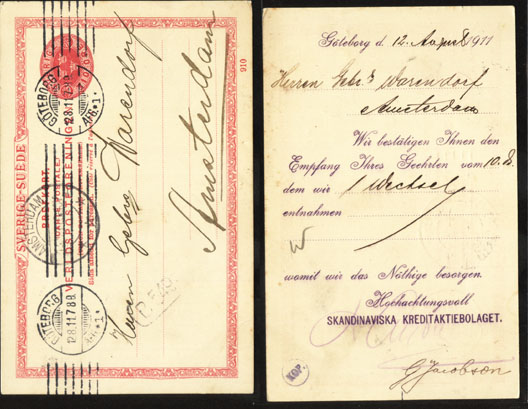 SVERIGE-SUÈDE
BREFKORT
CARTE POSTALE
VERLDSPOSTFÖRENINGEN
GÖTEBORG
12.8.11
GÖTEBORG
12.8.11
AMSTERDAM
910
Herren Gebr. Warendorf
Amsterdam
Göteborg d. 12. August 1911
Herren Gebr. Warendorf
Amsterdam
Wir bestätigen Ihnen den
Empfang Ihres Geehrten vom 10. 8.
dem wir 1 Wechsel
entnahmen
womit wir das Nöthige besorgen.
Hochachtungsvoll
SKANDINAVISKA KREDITAKTIEBOLAGET.
G Jacobson
KOP.